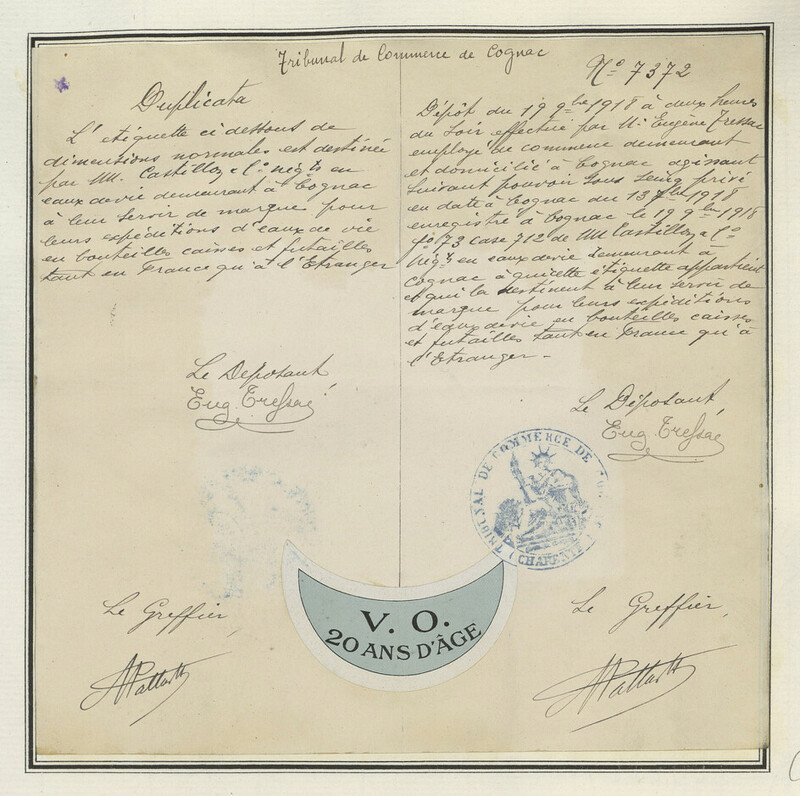 Tribunal de Commerce de Cognac
Nº 7372
Duplicata
L'etiquette ci dessous de
dimensions normales est destinée
par MM. Castillon & Cº négts en
eaux de vie demeurant à Cognac
à leur servir de marque pour
leurs expéditions d'eaux de vie
en bouteilles caisses et futailles
tant en France qu'à l'Etranger
Le Déposant
Eug. Tressac
Le Greffier,
Dépôt du 19 9bre 1918 à deux heures
du soir effectué par Mr Eugène Tressac
employé de commerce demeurant
et domicilié à Cognac agissant
suivant pouvoir sous seing privé
en date à Cognac du 13 7bre 1918
enregistré à Cognac le 19 9bre 1918
fo 73 case 712 de MM Castillon & Cº
négts en eaux de vie demeurant à
Cognac à qui cette étiquette appartient
et qui la destinent à leur servir de
marque pour leurs expéditions
d'eaux de vie en bouteilles caisses
et futailles tant en France qu'à
l'Etranger -
Le Déposant,
Eug. Tressac
TRIBUNAL DE COMMERCE DE
(CHARENTE)
Le Greffier,
V. O.
20 ANS D'ÂGE